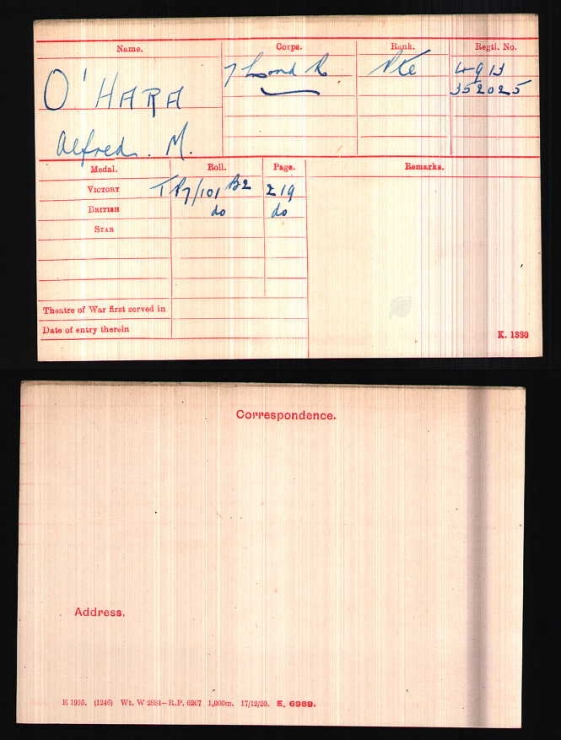 Name. Corps. Rank. Regtl. No.
O'HARA 7 Lond R. Pte 4913
352025
Alfred. M.
Medal. Roll. Page. Remarks.
VICTORY TP7/101 B2 219
BRITISH do do
STAR
Theatre of War first served in
Date of entry therein
K. 1380
Correspondence.
Address.
(1246) Wt. W 2884—R.P. 6267 1,000m. 17/12/20. E. 6989.